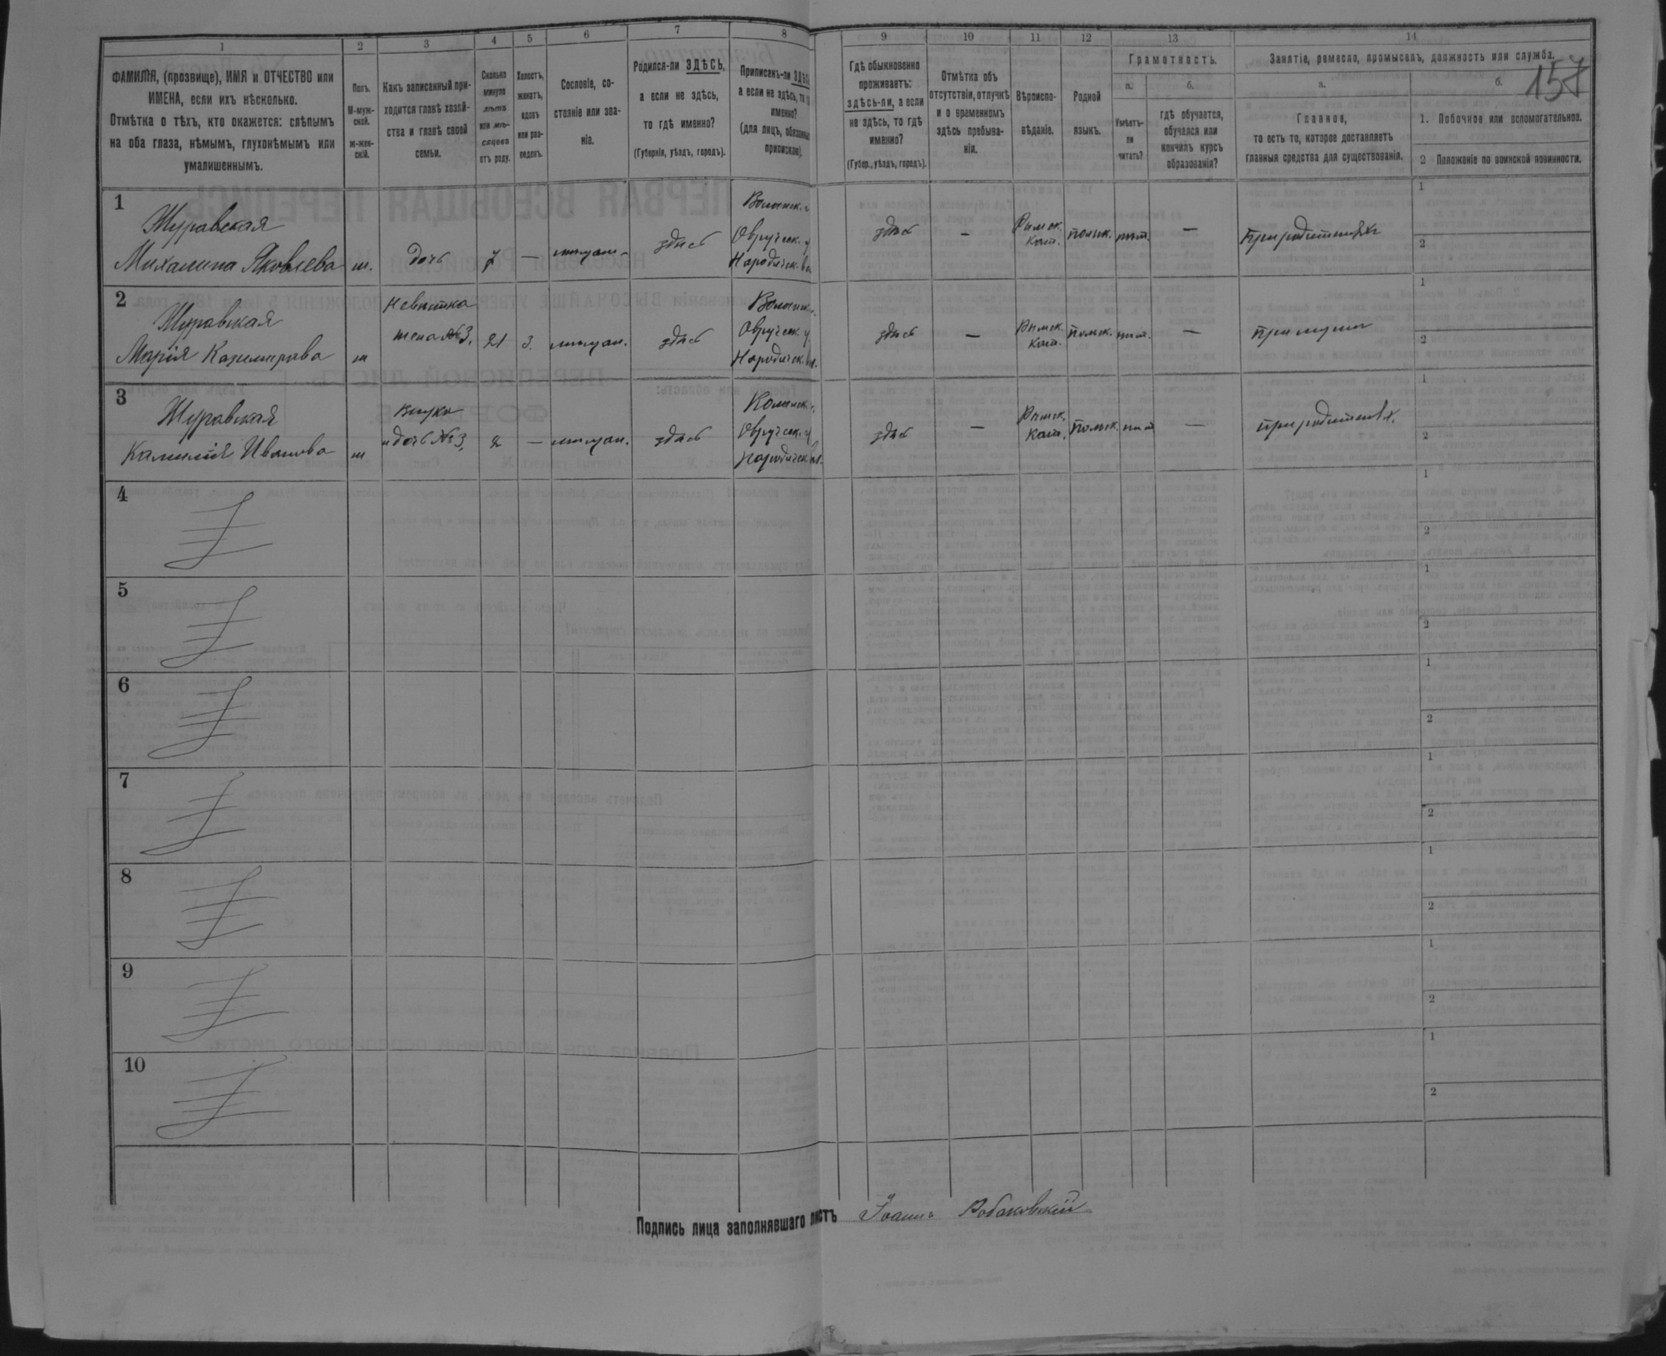 157
1
2
3
4
5
6
7
8
9
10
11
12
13
14
ФАМИЛІЯ, (прозвище), ИМЯ и ОТЧЕСТВО или
ИМЕНА, если ихъ нѣсколько.
Отмѣтка о тѣхъ, кто окажется: слѣпымъ
на оба глаза, нѣмымъ, глухонѣмымъ или
умалишеннымъ.
Полъ.
М-муж-
ской.
ж-жен-
скій.
Какъ записанный при-
ходится главѣ хозяй-
ства и главѣ своей
семьи.
Сколько
минуло
лѣтъ
или мѣ-
сяцевъ
отъ роду.
Холостъ,
женатъ,
вдовъ
или раз-
веденъ.
Сословіе, со-
стояніе или зва-
ніе.
Родился-ли ЗДѢСЬ,
а если не здѣсь,
то гдѣ именно?
(Губернія, уѣздъ, городъ).
Приписанъ-ли
а если не здѣсь,
именно?
(для лицъ,
припискою).
Гдѣ обыкновенно
проживаетъ:
здѣсь-ли, а если
не здѣсь, то гдѣ
именно?
(Губер., уѣздъ, городъ).
Отмѣтка объ
отсутствіи, отлучкѣ
и о временномъ
здѣсь пребыва-
ніи.
Вѣроиспо-
вѣданіе.
Родной
языкъ.
Грамотность.
а.
Умѣетъ-
ли
читать?
б.
гдѣ обучается,
обучался или
кончилъ курсъ
образованія?
Занятіе, ремесло, промыселъ, должность или служба.
а.
Главное,
то есть то, которое доставляетъ
главныя средства для существованія.
б.
1. Побочное или вспомогательное.
2 Положеніе по воинской повинности.
1
Журавская
Михалина Яковлева
дочь
7
—
здѣсь
Волынск.
Овручск. у
Народичск.
здѣсь
—
Римск.
Кат.
польск.
—
1
2
2
Журавская
Марія Казимирова
Невѣстка
жена №3.
21
з.
здѣсь
Волынск.
Овручск. у.
Народичск.
здѣсь
—
Римск.
Кат.
польск.
—
при мужѣ
1
2
3
Журавская
Ивановa
внука
и дочь №3,
2
—
здѣсь
Волынск.
Овручск. у
Народичск.
здѣсь
—
Римск.
Кат.
польск.
—
1
2
4
1
2
5
1
2
6
1
2
7
1
2
8
1
2
9
1
2
10
1
2
Подпись лица заполнявшаго листъ